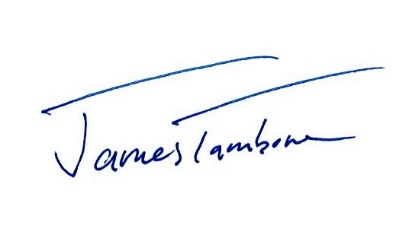 James Tambone